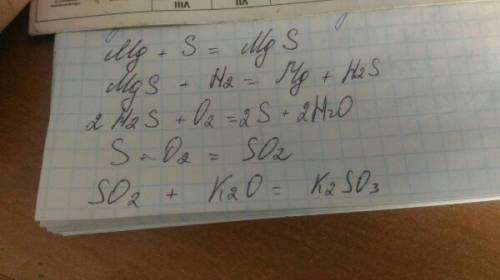 VIII VIII
Mg + S = MgS
MgS + H2 = Mg + H2S
2 H2S + O2 = 2S + 2H2O
S - O2 = SO2
SO2 + K2O = K2SO3